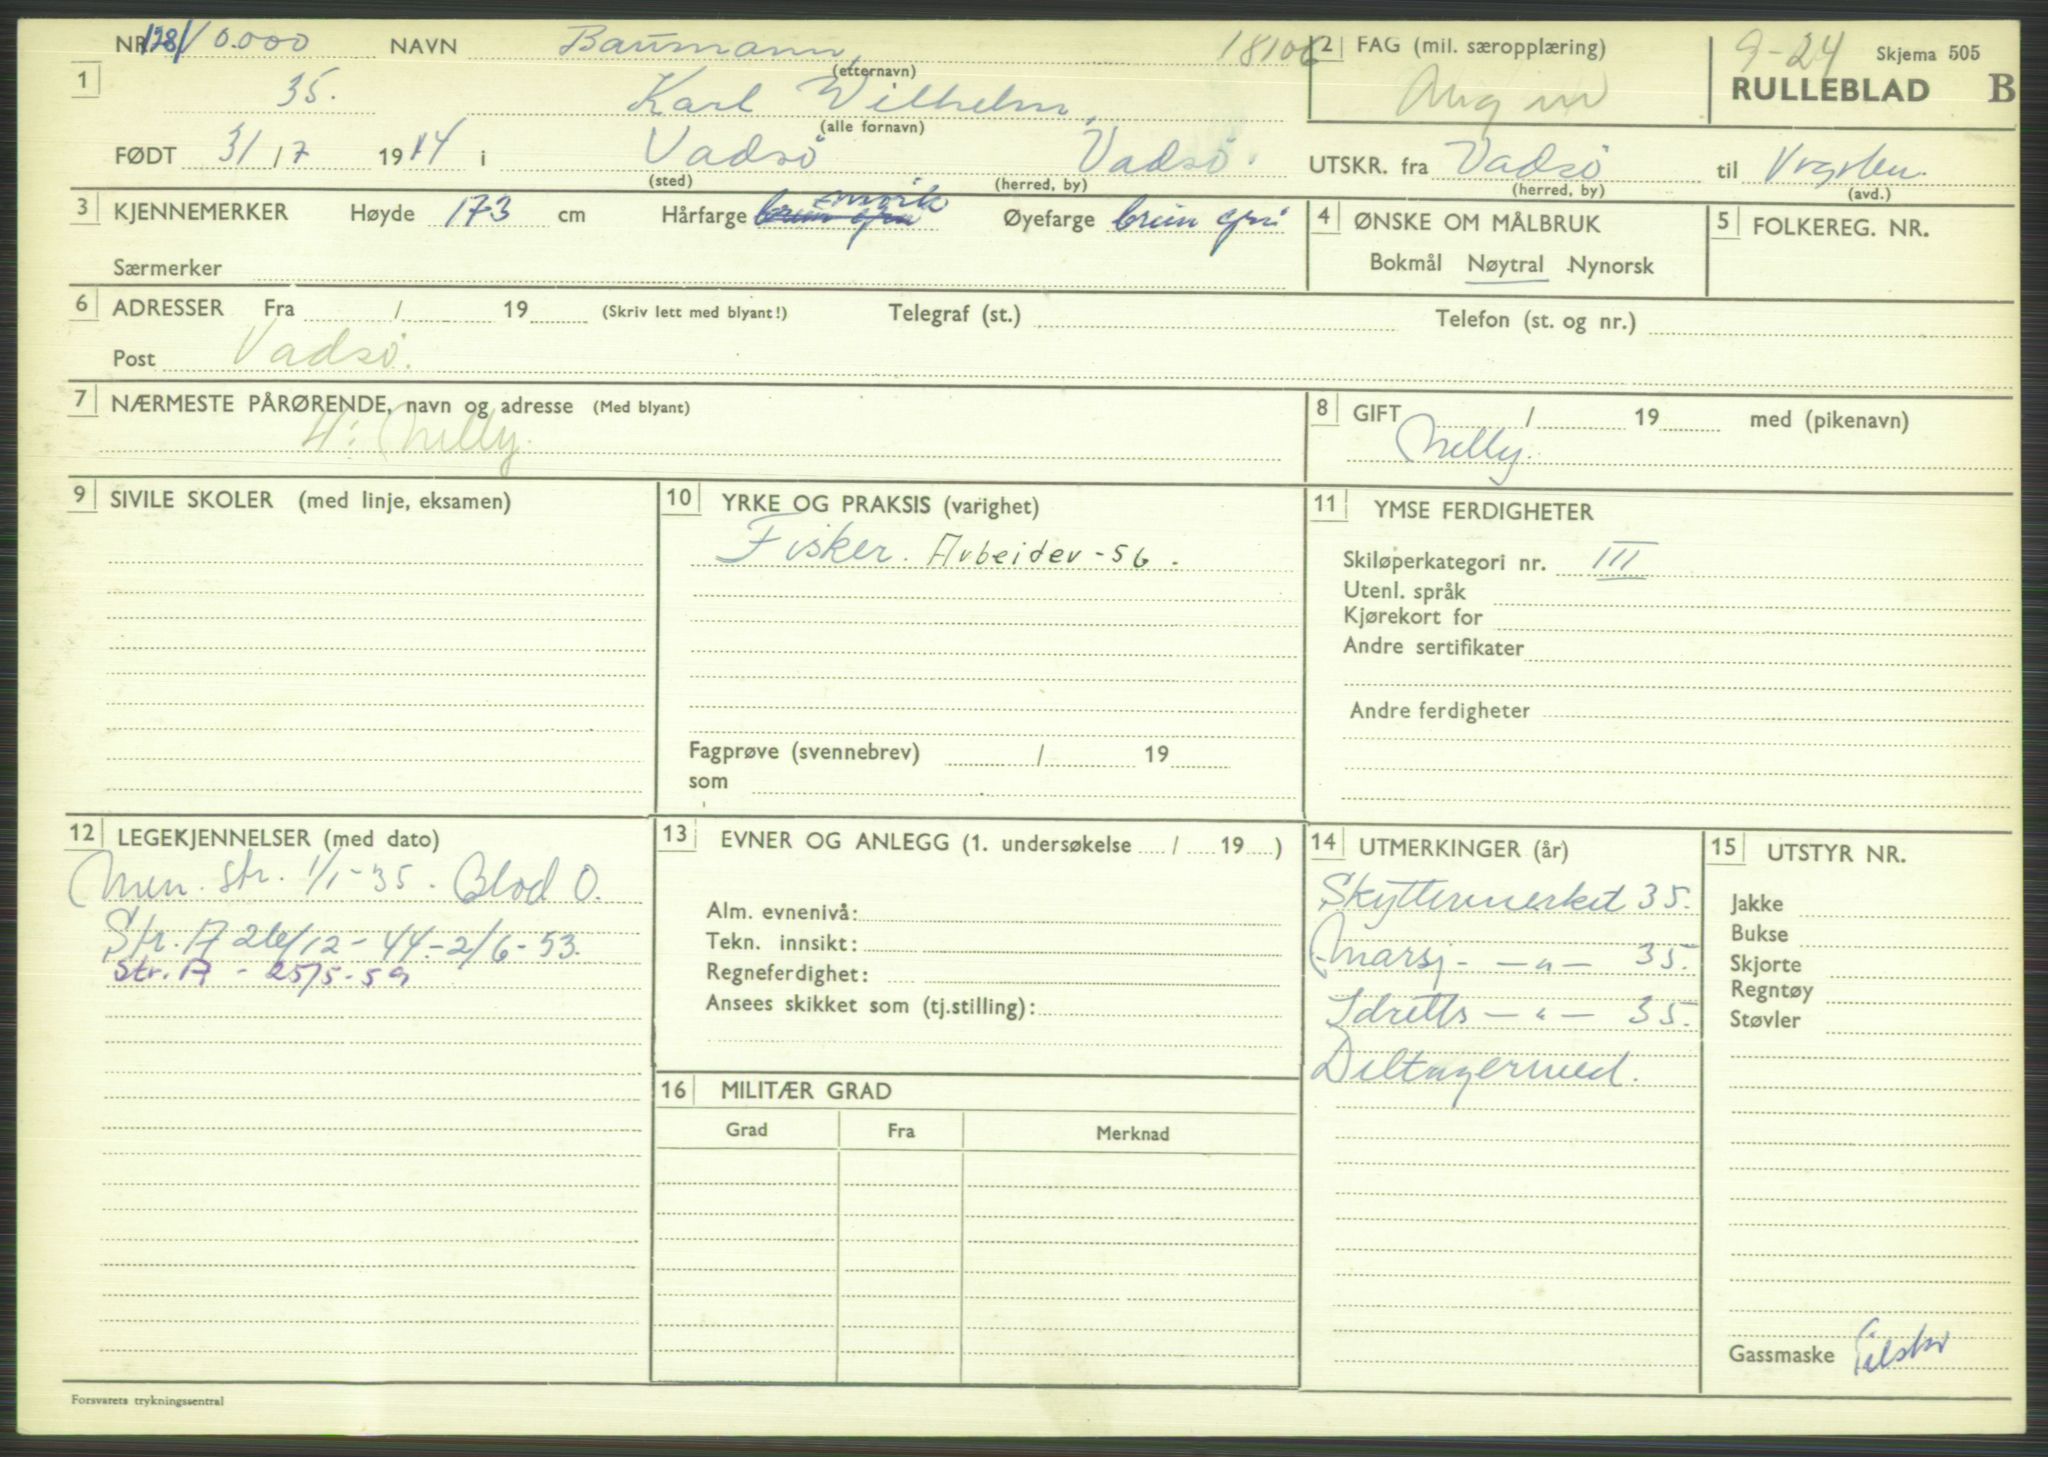 NR 128/ 0.000 NAVN Baumann, 18106 2 FAG (mil. særopplæring) 9-24 Skjema 505
1 (etternavn) RULLEBLAD B
35. Karl Wilhelm.
(alle fornavn)
FØDT 31/7 1914 i Vadsö Vadsö. UTSKR. fra Vadsö til
(sted) (herred, by) (herred, by) (avd.)
3 KJENNEMERKER Høyde 173 cm Hårfarge mörk Øyefarge brun 4 ØNSKE OM MÅLBRUK 5 FOLKEREG. NR.
Særmerker Bokmål Nøytral Nynorsk
6 ADRESSER Fra / 19 (Skriv lett med blyant!) Telegraf (st.) Telefon (st. og nr.)
Post Vadsö.
7 NÆRMESTE PÅRØRENDE, navn og adresse (Med blyant) 8 GIFT / 19 med (pikenavn)
H: Nelly. Nelly.
9 SIVILE SKOLER (med linje, eksamen) 10 YRKE OG PRAKSIS (varighet) 11 YMSE FERDIGHETER
Fisker. Arbeider -56.
Skiløperkategori nr. III
Utenl. språk
Kjørekort for
Andre sertifikater
Andre ferdigheter
Fagprøve (svennebrev) / 19
som
12 LEGEKJENNELSER (med dato) 13 EVNER OG ANLEGG (1. undersøkelse / 19 ) 14 UTMERKINGER (år) 15 UTSTYR NR.
Min. str. 1/1-35. Blod O.
Str. A 26/12-44-2/6-53.
Str. A - 25/5-59
Alm. evnenivå:
Tekn. innsikt:
Regneferdighet:
Ansees skikket som (tj.stilling):
Skyttermerket 35.
Marsj- —"— 35.
Idretts —"— 35.
Deltagermed.
Jakke
Bukse
Skjorte
Regntøy
Støvler
16 MILITÆR GRAD
Grad Fra Merknad
Gassmaske
Forsvarets trykningssentral